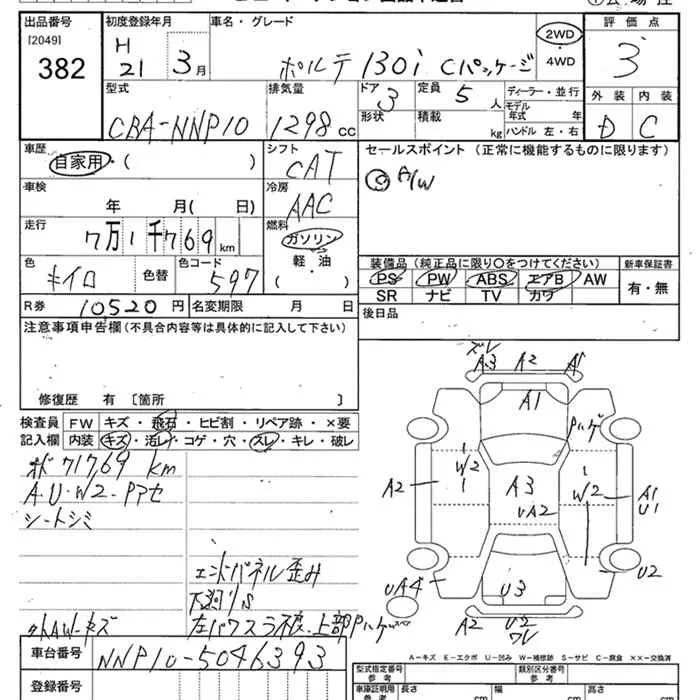 出品番号 初度登録年月 車名・グレード 2WD 評価点
[2049] H 4WD
382 21 3月 ポルテ 130i Cパッケージ 3
型式 排気量 ドア 定員 ディーラー・並行 外装 内装
3 5人 モデル
CBA-NNP10 1298cc 形状 積載 年式 年 D C
kg ハンドル 左・右
車歴 シフト セールスポイント (正常に機能するものに限ります)
自家用・( ) CAT A/W
車検 冷房
年 月( 日) AAC
走行 燃料
7万1千769km ガソリン
色 色替 色コード 軽・油 装備品(純正品に限り〇をつけてください) 新車保証書
キイロ 597 ・ PS PW ABS エアB AW 有・無
R券 10520円 名変期限 月 日 SR ナビ TV カワ
注意事項申告欄(不具合内容等は具体的に記入して下さい) 後日品
修復歴 有 〔箇所 〕
検査員 FW キズ・飛石・ヒビ割・リペア跡・×要
記入欄 内装 キズ・汚レ・コゲ・穴・スレ・キレ・破レ
71769 km
A.U.W2.
シートシミ
エンドパネル歪み
上部Pハゲ
ズレ
A3 A2 A1
A1
Pハゲ
W2
A2 A3 W2 A1
UA2 U1
UA4 U3 U2
A2 U2
ワレ
A-キズ E-エクボ U-凹み W-補修跡 S-サビ C-腐食 ××-交換済
車台番号 NNP10-5046393
型式指定番号 参考 類別区分番号 参考
登録番号 車庫証明用 参考 長さ cm 幅 cm 高さ cm